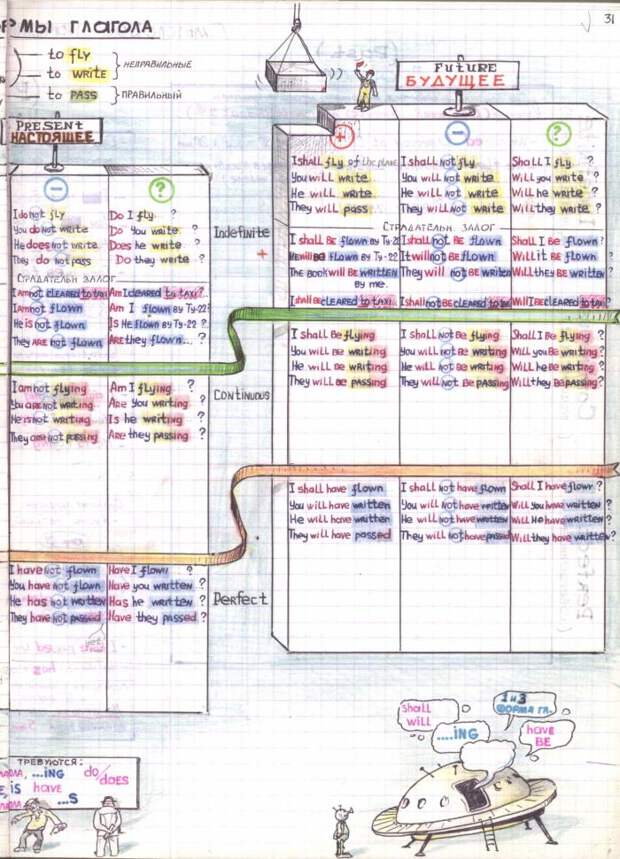 31
РМЫ ГЛАГОЛА
to fly
to WRITE
НЕПРАВИЛЬНЫЕ
to PASS
ПРАВИЛЬНЫЙ
PRESENT
НАСТОЯЩЕЕ
FUTURE
БУДУЩЕЕ
− ?
I do not fly Do I fly ?
You do not write Do You write ?
He does not write Does he write ?
They do not pass Do they write ?
СТРАДАТЕЛЬН ЗАЛОГ
I am not CLEARED to taxi Am I cleared to taxi?
I am not flown Am I flown by Ty-22?
He is not flown Is He flown by Ty-22 ?
They ARE not flown ARE they flown... ?
I am not flying Am I flying ?
You are not writing Are You writing ?
He is not writing Is he writing ?
They are not passing Are they passing ?
I have not flown Have I flown ?
You have not flown Have you written ?
He has not written Has he written ?
They have not passed Have they passed ?
yet
Indefinite
+
Continuous
Perfect
+ − ?
I shall fly of the plane I shall not fly Shall I fly ?
You will write You will not write Will you write ?
He will write He will not write Will he write ?
They will pass They will not write Will they write ?
СТРАДАТЕЛЬН ЗАЛОГ
I shall BE flown by Ty-22 I shall not BE flown Shall I BE flown ?
He will BE flown by Ty-22 It will not BE flown Will it BE flown ?
The book will BE written by me. They will not BE written Will they BE written ?
I shall BE CLEARED to taxi. I shall not BE cleared to taxi Will I BE cleared to taxi ?
I shall Be flying I shall not Be flying Shall I Be flying ?
You will Be writing You will not Be writing Will you Be writing ?
He will Be writing He will not Be writing Will he Be writing ?
They will Be passing They will not Be passing Will they Be passing?
I shall have flown I shall not have flown Shall I have flown ?
You will have written You will not have written Will you have written ?
He will have written He will not have written Will He have written ?
They will have passed They will not have passed Will they have written?
ТРЕБУЮТСЯ:
...ING do/does
IS have
...S
shall
will
1 и 3
ФОРМА ГЛ.
....ING
have
BE